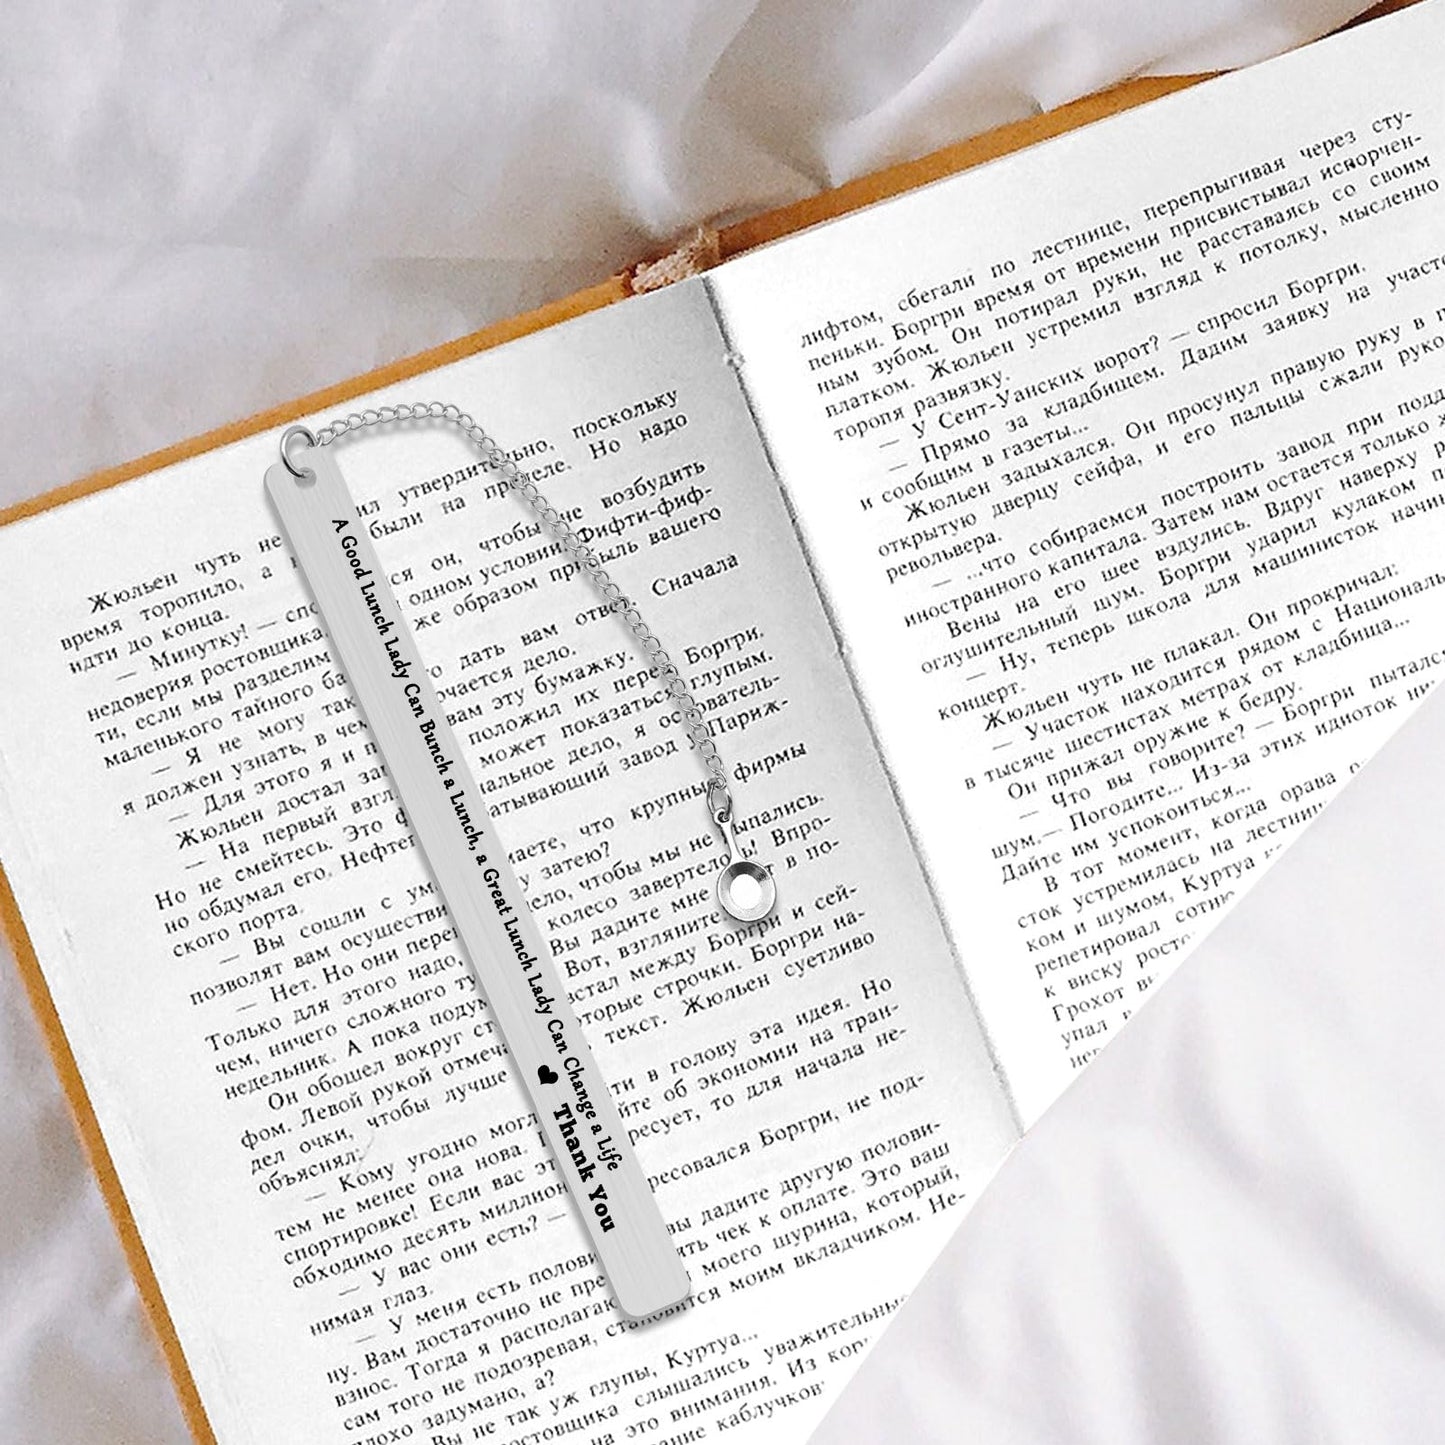 A Good Lunch Lady Can Bunch a Lunch, a Great Lunch Lady Can Change a Life
♥ Thank You
ил утвердительно, поскольку
Жюльен чуть не были на пределе. Но надо
время торопило, а
идти до конца.
— Минутку! — спо ся он, чтобы не возбудить
недоверия ростовщика. одном условии. Фифти-фиф-
ти, если мы разделим же образом прибыль вашего
маленького тайного ба
— Я не могу так о дать вам ответ. Сначала
я должен узнать, в чем ючается дело.
— Для этого я и п вам эту бумажку.
Жюльен достал за положил их перед Боргри.
— На первый взгл может показаться глупым.
Но не смейтесь. Это ф нальное дело, я основатель-
но обдумал его. Нефтеп атывающий завод у Париж-
ского порта.
— Вы сошли с ум маете, что крупные фирмы
позволят вам осуществи у затею?
— Нет. Но они пере дело, чтобы мы не рыпались.
Только для этого надо, колесо завертелось! Впро-
чем, ничего сложного ту Вы дадите мне в по-
недельник. А пока подум Вот, взгляните.
Он обошел вокруг ст встал между Боргри и сей-
фом. Левой рукой отмеча торые строчки. Боргри на-
дел очки, чтобы лучше текст. Жюльен суетливо
объяснял:
— Кому угодно могл ти в голову эта идея. Но
тем не менее она нова. йте об экономии на тран-
спортировке! Если вас эт ресует, то для начала не-
обходимо десять миллион
— У вас они есть? — ресовался Боргри, не под-
нимая глаз.
— У меня есть полови вы дадите другую полови-
ну. Вам достаточно не пре ять чек к оплате. Это ваш
взнос. Тогда я располагаю моего шурина, который,
сам того не подозревая, становится моим вкладчиком. Не-
плохо задумано, а?
Вы не так уж глупы, Куртуа...
остовщика слышались уважительные
на это внимания. Из кор
ание каблучков
лифтом, сбегали по лестнице, перепрыгивая через сту-
пеньки. Боргри время от времени присвистывал испорчен-
ным зубом. Он потирал руки, не расставаясь со своим
платком. Жюльен устремил взгляд к потолку, мысленно
торопя развязку.
— У Сент-Уанских ворот? — спросил Боргри.
— Прямо за кладбищем. Дадим заявку на участо
и сообщим в газеты...
Жюльен задыхался. Он просунул правую руку в п
открытую дверцу сейфа, и его пальцы сжали руко
револьвера.
— ...что собираемся построить завод при подд
иностранного капитала. Затем нам остается только ж
Вены на его шее вздулись. Вдруг наверху р
оглушительный шум. Боргри ударил кулаком п
— Ну, теперь школа для машинисток начин
концерт.
Жюльен чуть не плакал. Он прокричал:
— Участок находится рядом с Националь
в тысяче шестистах метрах от кладбища...
Он прижал оружие к бедру.
— Что вы говорите? — Боргри пыталс
шум.— Погодите... Из-за этих идиоток ни
Дайте им успокоиться...
В тот момент, когда орава
сток устремилась на лестни
ком и шумом, Куртуа
репетировал сотню
к виску росто
Грохот в
упал в